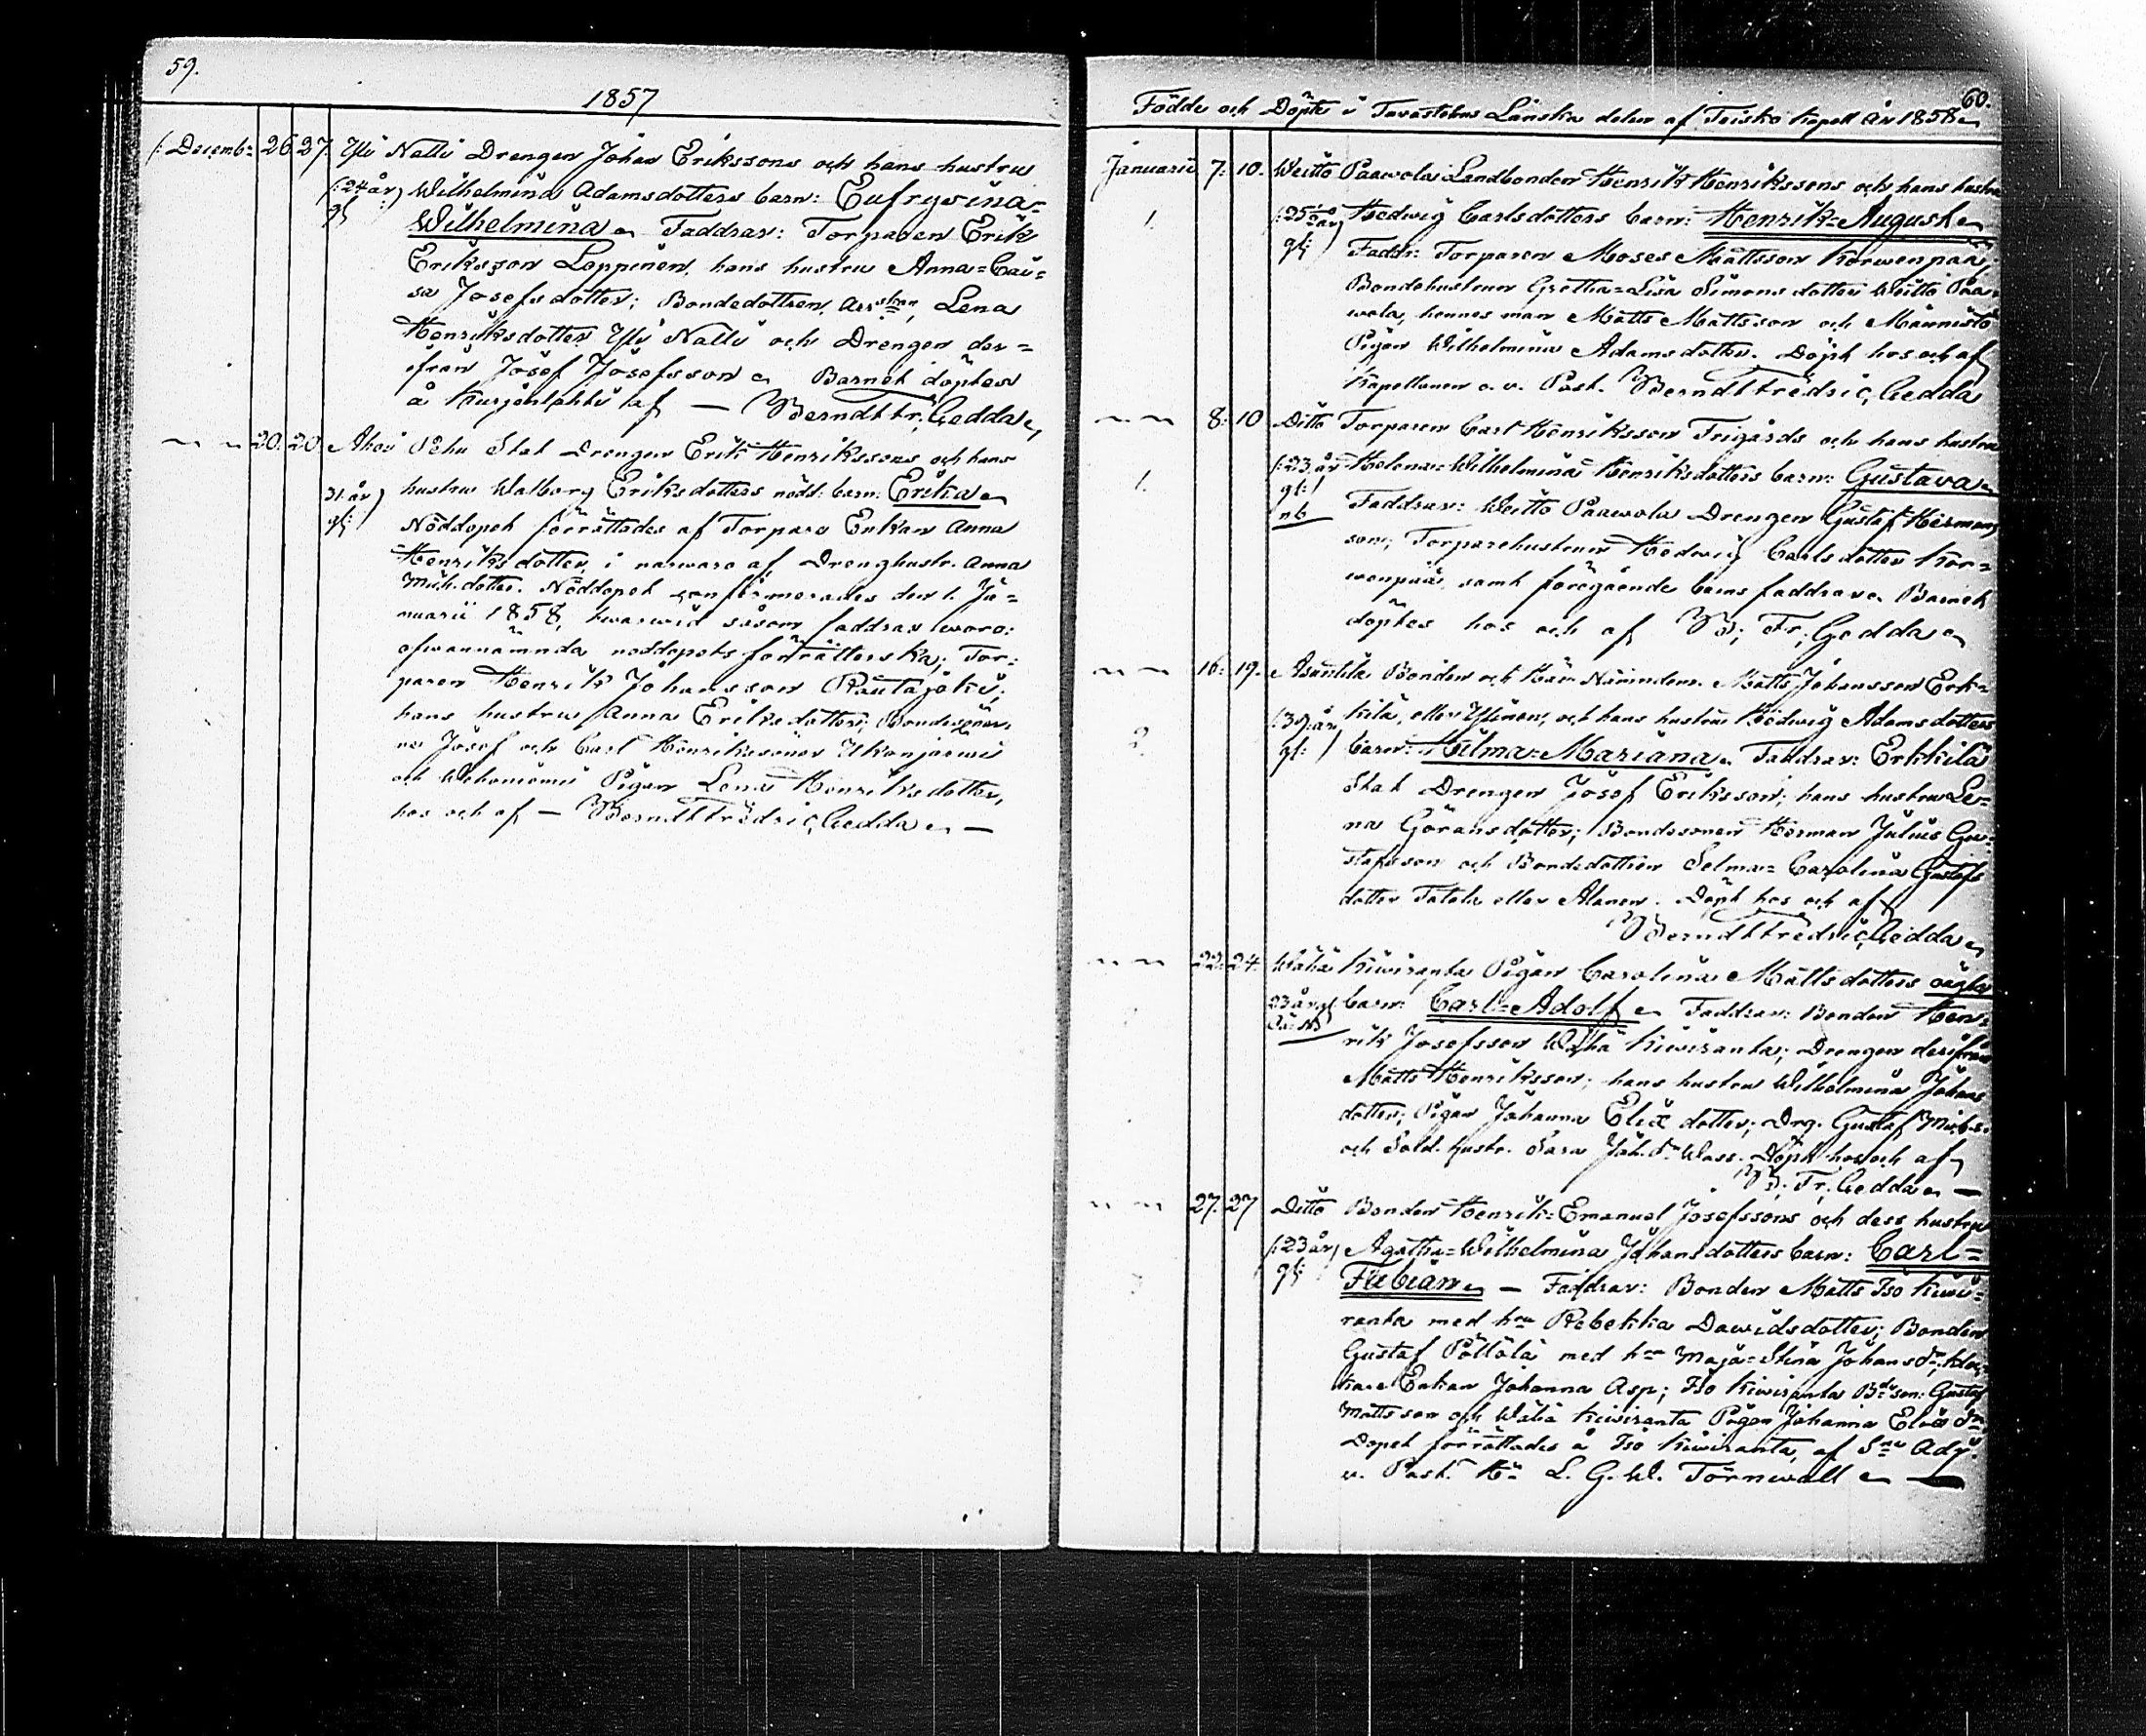 59.
1857
Decemb: 26. 27. Yli Nalli Drengen Johan Erikssons och hans hustru
(:24 år) Wilhelmina Adamsdotters barn: Eufrysina=
gl:
Wilhelmina. Faddrar: Torparen Erik
Eriksson Loppinen, hans hustru Anna=Cai=
sa Josefsdotter; Bondedottren, Lena
Henriksdotter Yli Nalli och Drengen der=
ifrån Josef Josefsson. Barnet döptes
å Kurjenlahti af — Berndt Fr. Gedda
20. 20. Ahoi Pehu Stat Drengen Erik Henrikssons och hans
31 år) hustru Walborg Eriksdotters nödd: barn: Erika
gl:
Nöddopet förrättades af Torpare Enkan Anna
Henriksdotter, i närwaro af Drenghustr. Anna
Mich.dotter. Nöddopet confirmerades den 1. Ja=
nuarii 1858, hwarwid såsom faddrar woro:
ofwannämnda nöddopets förrätterska; Tor=
paren Henrik Johansson Rautajoki;
hans hustru Anna Eriksdotter; Bondesöner
na Josef och Carl Henrikssöner Ukonjärwi
och Pigan Lena Henriksdotter,
hos och af — Berndt Fredric Gedda —
60.
Födde och Döpte i Tavastehus Länska delen af Teisko Kapell År 1858
Januarii 7: 10. Weittö Paawola Landbonden Henrik Henrikssons och hans hustru
1. (:25 år) Hedwig Carlsdotters barn: Henrik=August
gl:
Faddr: Torparen Moses Mattsson Korwenpää,
Bondehustrun Gretha=Lisa Simonsdotter Weittö Paa=
wola, hennes man Matts Mattsson och Männistö
Pigan Wilhelmina Adamsdotter. Döpt hos och af
Kapellanen o. v. Past. Berndt Fredric Gedda
8: 10 Ditto Torparen Carl Henriksson Frigårds och hans hustru
1. (:23 år Helena=Wilhelmina Henriksdotters barn: Gustava
gl:)
nb Faddrar: Weittö Paawola Drengen Gustaf Hermans
son; Torparehustrun Hedwig Carlsdotter Kor=
wenpää, samt föregående barns faddrar. Barnet
döptes hos och af B; Fr; Gedda
16: 19. Bonden och Matts Johansson Erk=
kilä, eller Ylinen, och hans hustru Hedwig Adamsdotters
(:39 år
gl:) barn: Hilma=Mariana. Faddrar: Erkkilä
Stat Drengen Josef Eriksson; hans hustru Le=
na Göransdotter; Bondesonen Herman Julius Gu=
stafsson och Bondedottren Selma=Carolina Gustafs
dotter Tatola eller Alanen. Döpt hos och af
Berndt Fredric Gedda
22: 24. Wähä Kiwiranta Pigan Carolina Mattsdotters oägta
23 år gl barn: Carl=Adolf. Faddrar: Bonden Hen=
rik Josefsson Wähä Kiwiranta; Drengen derifrån
Matts Henriksson; hans hustru Wilhelmina Johans
dotter; Pigan Johanna Eliædotter; Drg. Gustaf Mich.s.
och Sold. hustr. Sara Joh.dr Wass. Döpt hos och af
B; Fr; Gedda —
27. 27 Ditto Bonden Henrik=Emanuel Josefssons och dess hustru
(:23 år) Agatha=Wilhelmina Johansdotters barn: Carl=
gl: Fabian — Faddrar: Bonden Matts Iso Kiwi=
ranta med hru Rebekka Dawidsdotter; Bonden
Gustaf Pöllölä med hru Maja=Stina Johansdr, Kloc=
kare Enkan Johanna Asp; Iso Kiwiranta Bde son: Gustaf
Mattsson och Wähä Kiwiranta Pigan Johanna Eliædr
Dopet förrättades å Iso Kiwiranta, af Adj.
v. Past. Hr L. G. W. Törnwall —